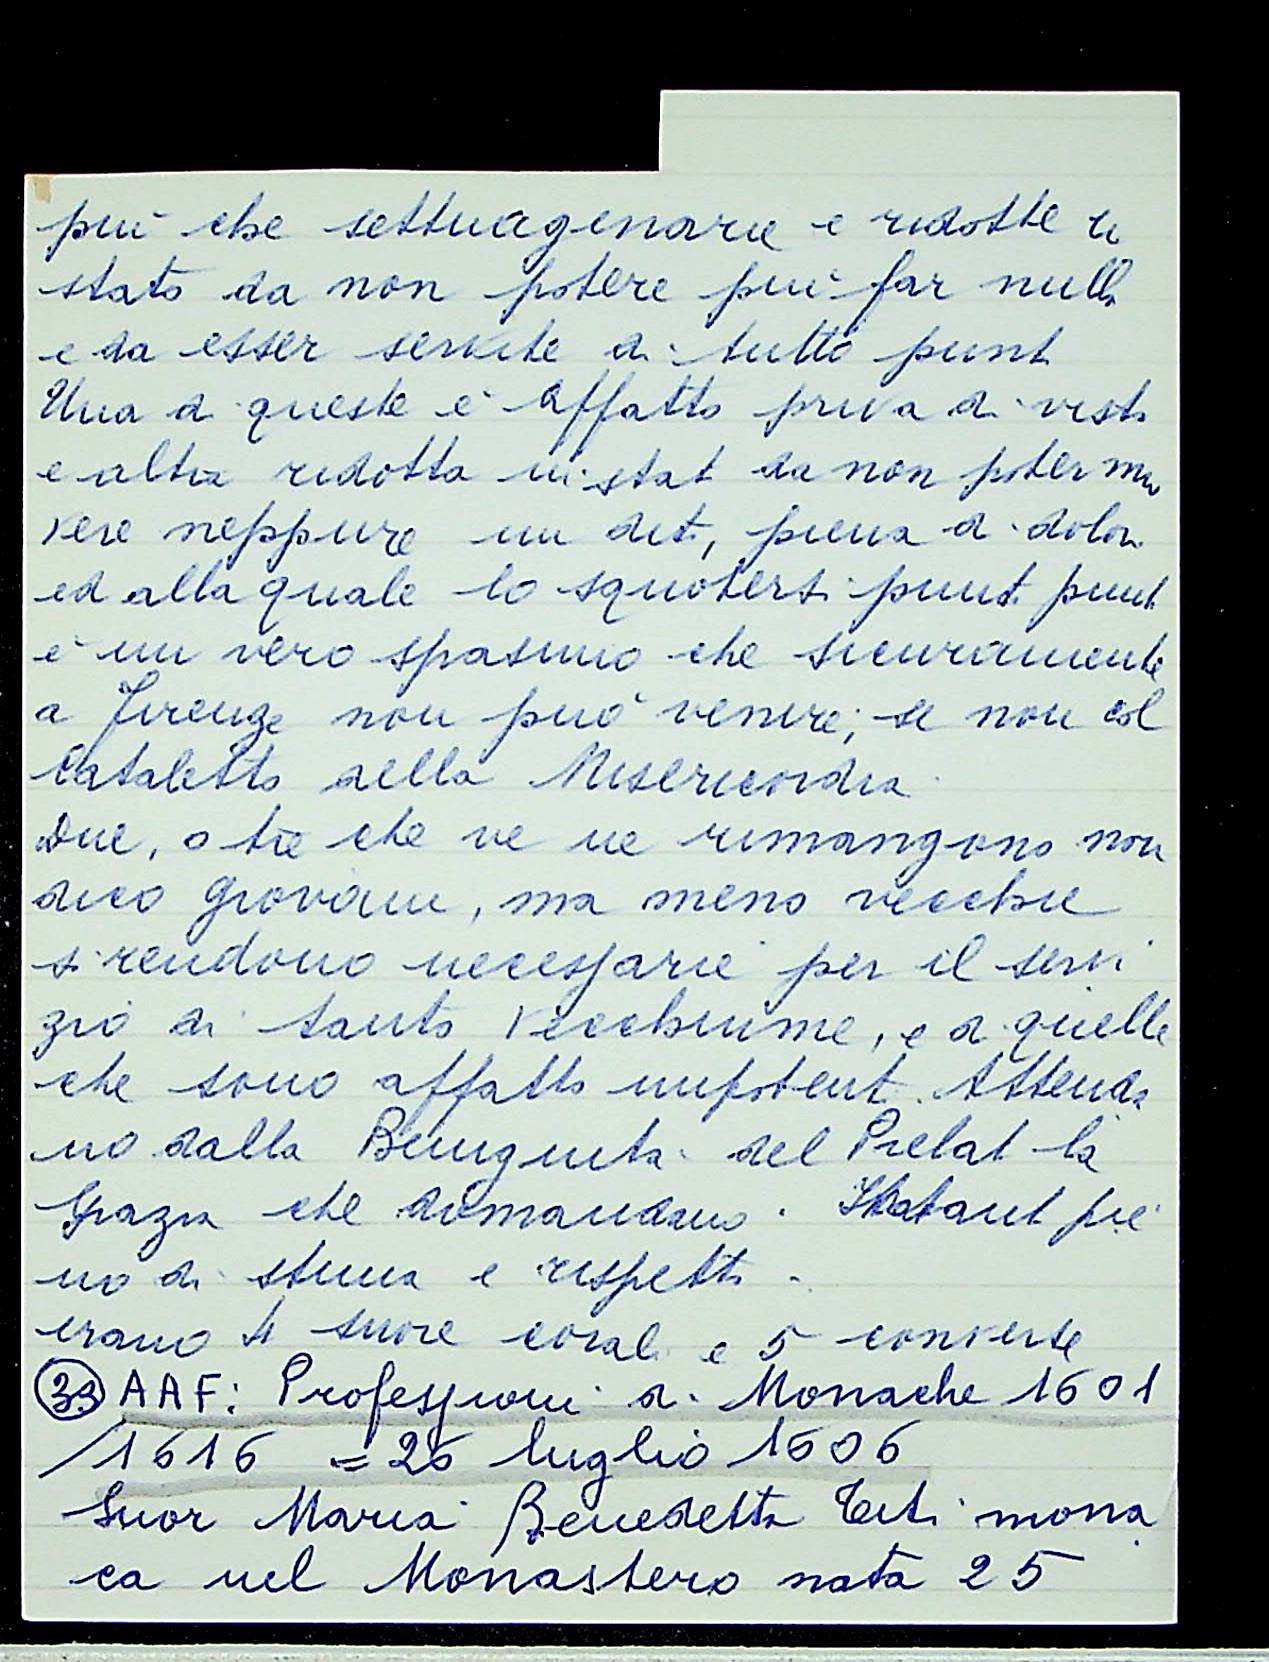 più che settuagenarie e ridotte a
stato da non potere più far nulla
e da esser servite di tutto punto
Una di queste è affatto priva di vista
e altra ridotta in stato da non poter muo
vere neppure un dito, piena di dolori
ed alla quale lo squotersi punto punto
è un vero spasimo che sicuramente
a Firenze non può venire; se non col
Cataletto della Misericordia.
Due, o tre che ve ne rimangono non
dico giovani, ma meno vecchie
si rendono necessarie per il servi
zio di tanto vecchiume, e di quelle
che sono affatto impotenti. Attendo
no dalla Benignità del Prelato la
Grazia che domandano. Intanto pie
no di stima e rispetto.
erano 4 suore corali e 5 converse
33 AAF: Professioni di Monache 1601
/1616 = 26 luglio 1606
Suor Maria Benedetta mona
ca nel Monastero nata 25